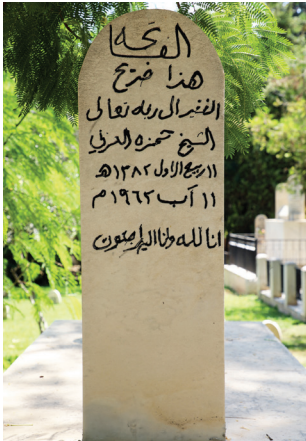 الفاتحة
هذا ضريح
الفقير الى ربه تعالى
الشيخ حمزه العربي
١١ ربيع الاول ١٣٨٢ هـ
١١ آب ١٩٦٢ م
انا لله وانا اليه راجعون